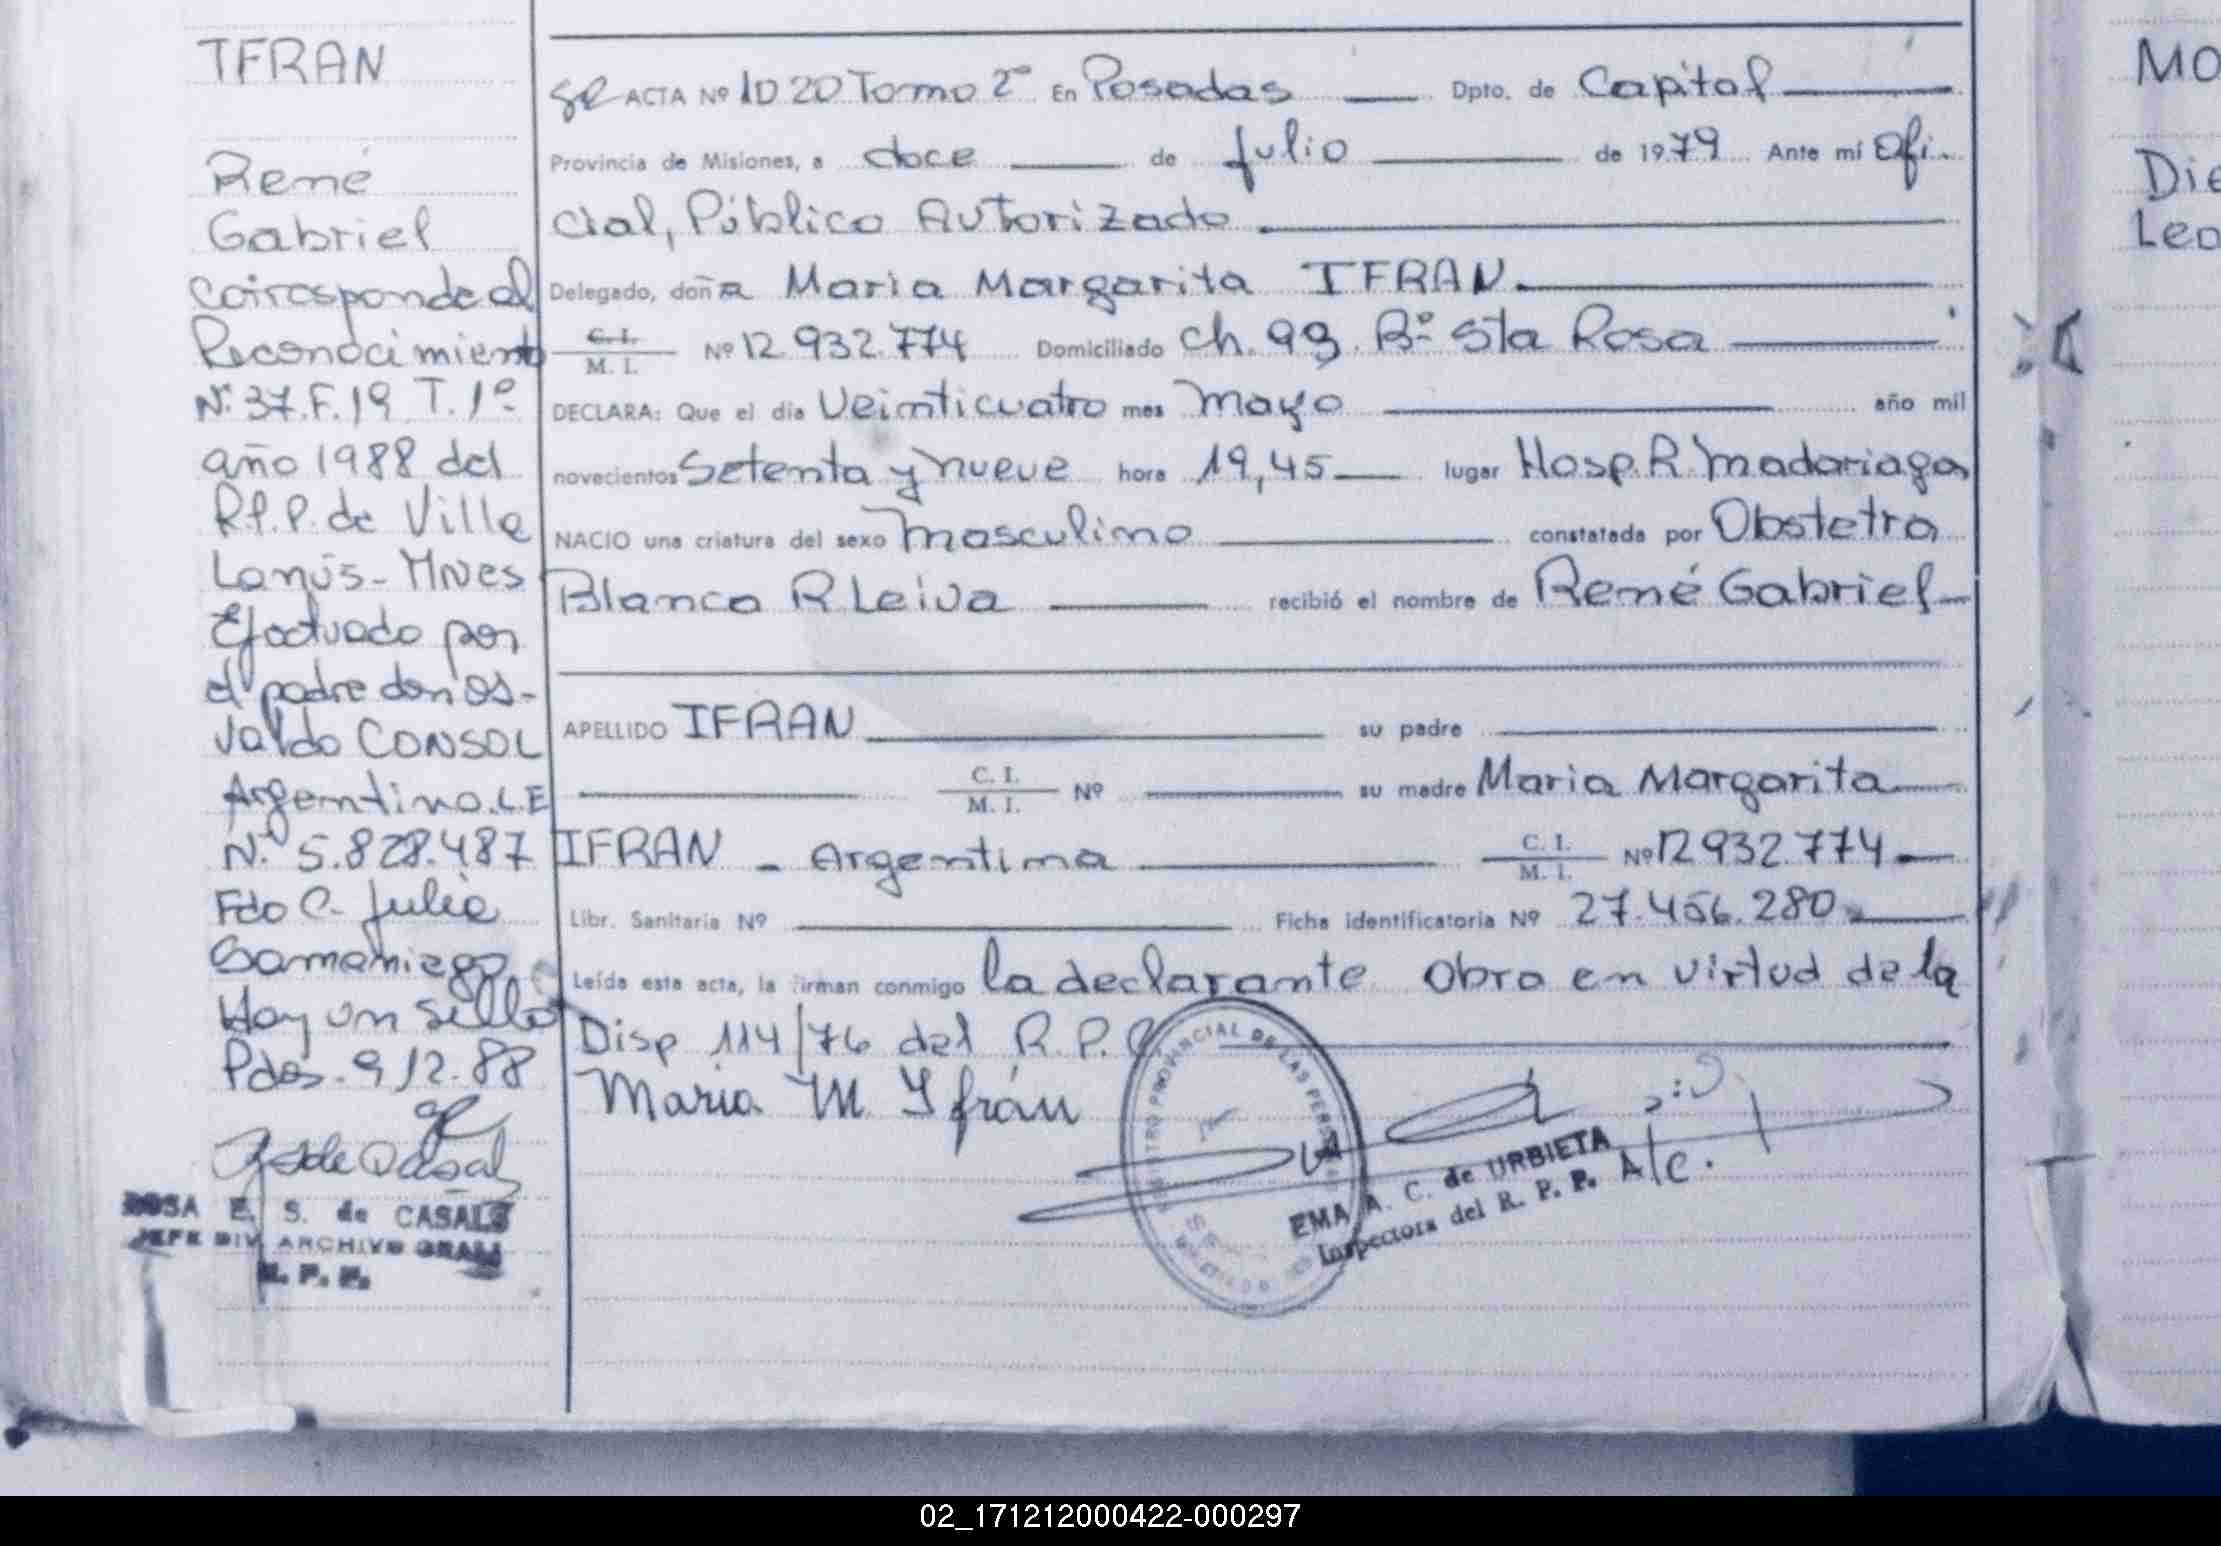 IFRAN
René
Gabriel
Corresponde al
Reconocimiento
Nº 37.F.19 T.1º
año 1988 del
R.P.P. de Villa
Lanús - Mnes
Efectuado por
el padre don Os-
valdo CONSOL
Argentino. L.E
Nº 5.828.487
Fdo C. Julia
Samaniego
Hay un sello
Pdas. 9/2.88
ROSA E. S. de CASALS
JEFE DIV. ARCHIVO GRAL
R. P. P.
ACTA Nº 1020 Tomo 2º En Posadas Dpto. de Capital
Provincia de Misiones, a doce de Julio de 1979 Ante mí Ofi-
cial, Público Autorizado
Delegado, doña Maria Margarita IFRAN.
C. I.
M. I. Nº 12.932.774 Domiciliado Ch. 99. Bº Sta Rosa
DECLARA: Que el día Veinticuatro mes Mayo año mil
novecientos Setenta y nueve hora 19,45 lugar Hosp. R. Madariaga
NACIO una criatura del sexo Masculino constatada por Obstetra
Blanca R Leiva recibió el nombre de René Gabriel
APELLIDO IFRAN su padre
C. I.
M. I. Nº su madre Maria Margarita
IFRAN - Argentina C. I.
M. I. Nº 12.932.774
Libr. Sanitaria Nº Ficha identificatoria Nº 27.456.280
Leída esta acta, la firman conmigo la declarante Obra en virtud de la
Disp 114/76 del R.P.P
Maria M. Ifrán
REGISTRO PROVINCIAL DE LAS PERSONAS
EMA A. C. de URBIETA
Inspectora del R. P. P. A/C.
MO
Die
Leo
02_171212000422-000297